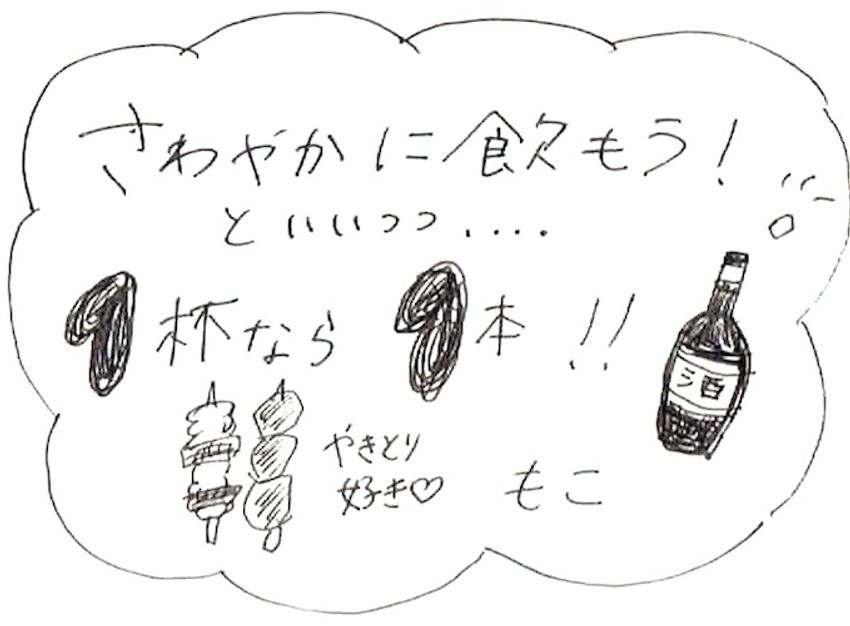 さわやかに飲もう!
といいつつ....
1杯なら1本!!
酒
やきとり
好き♡
もこ